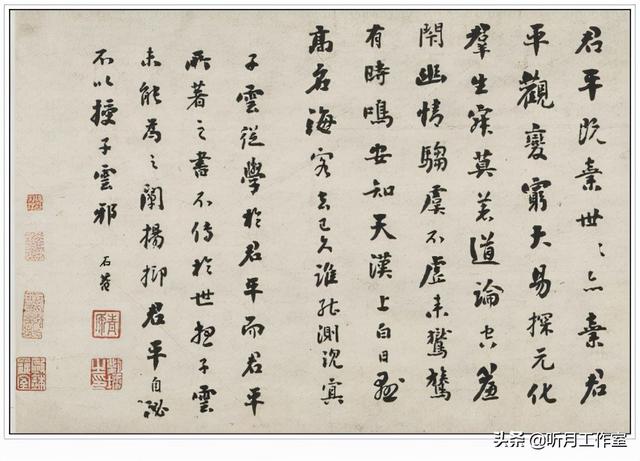 君平既棄世〻亦棄君
平觀變窮大易探元化
羣生寂莫著道論空簾
閉幽情騶虞不虛来鸑鷟
有時鳴安知天漢上白日懸
高名海客去已久誰能測沈冥
子雲從學於君平而君平
所著之書不傳於世子雲
未能為之闡揚抑君平自祕
不以授子雲邪
石菴
劉墉之印
头条 @听月工作室